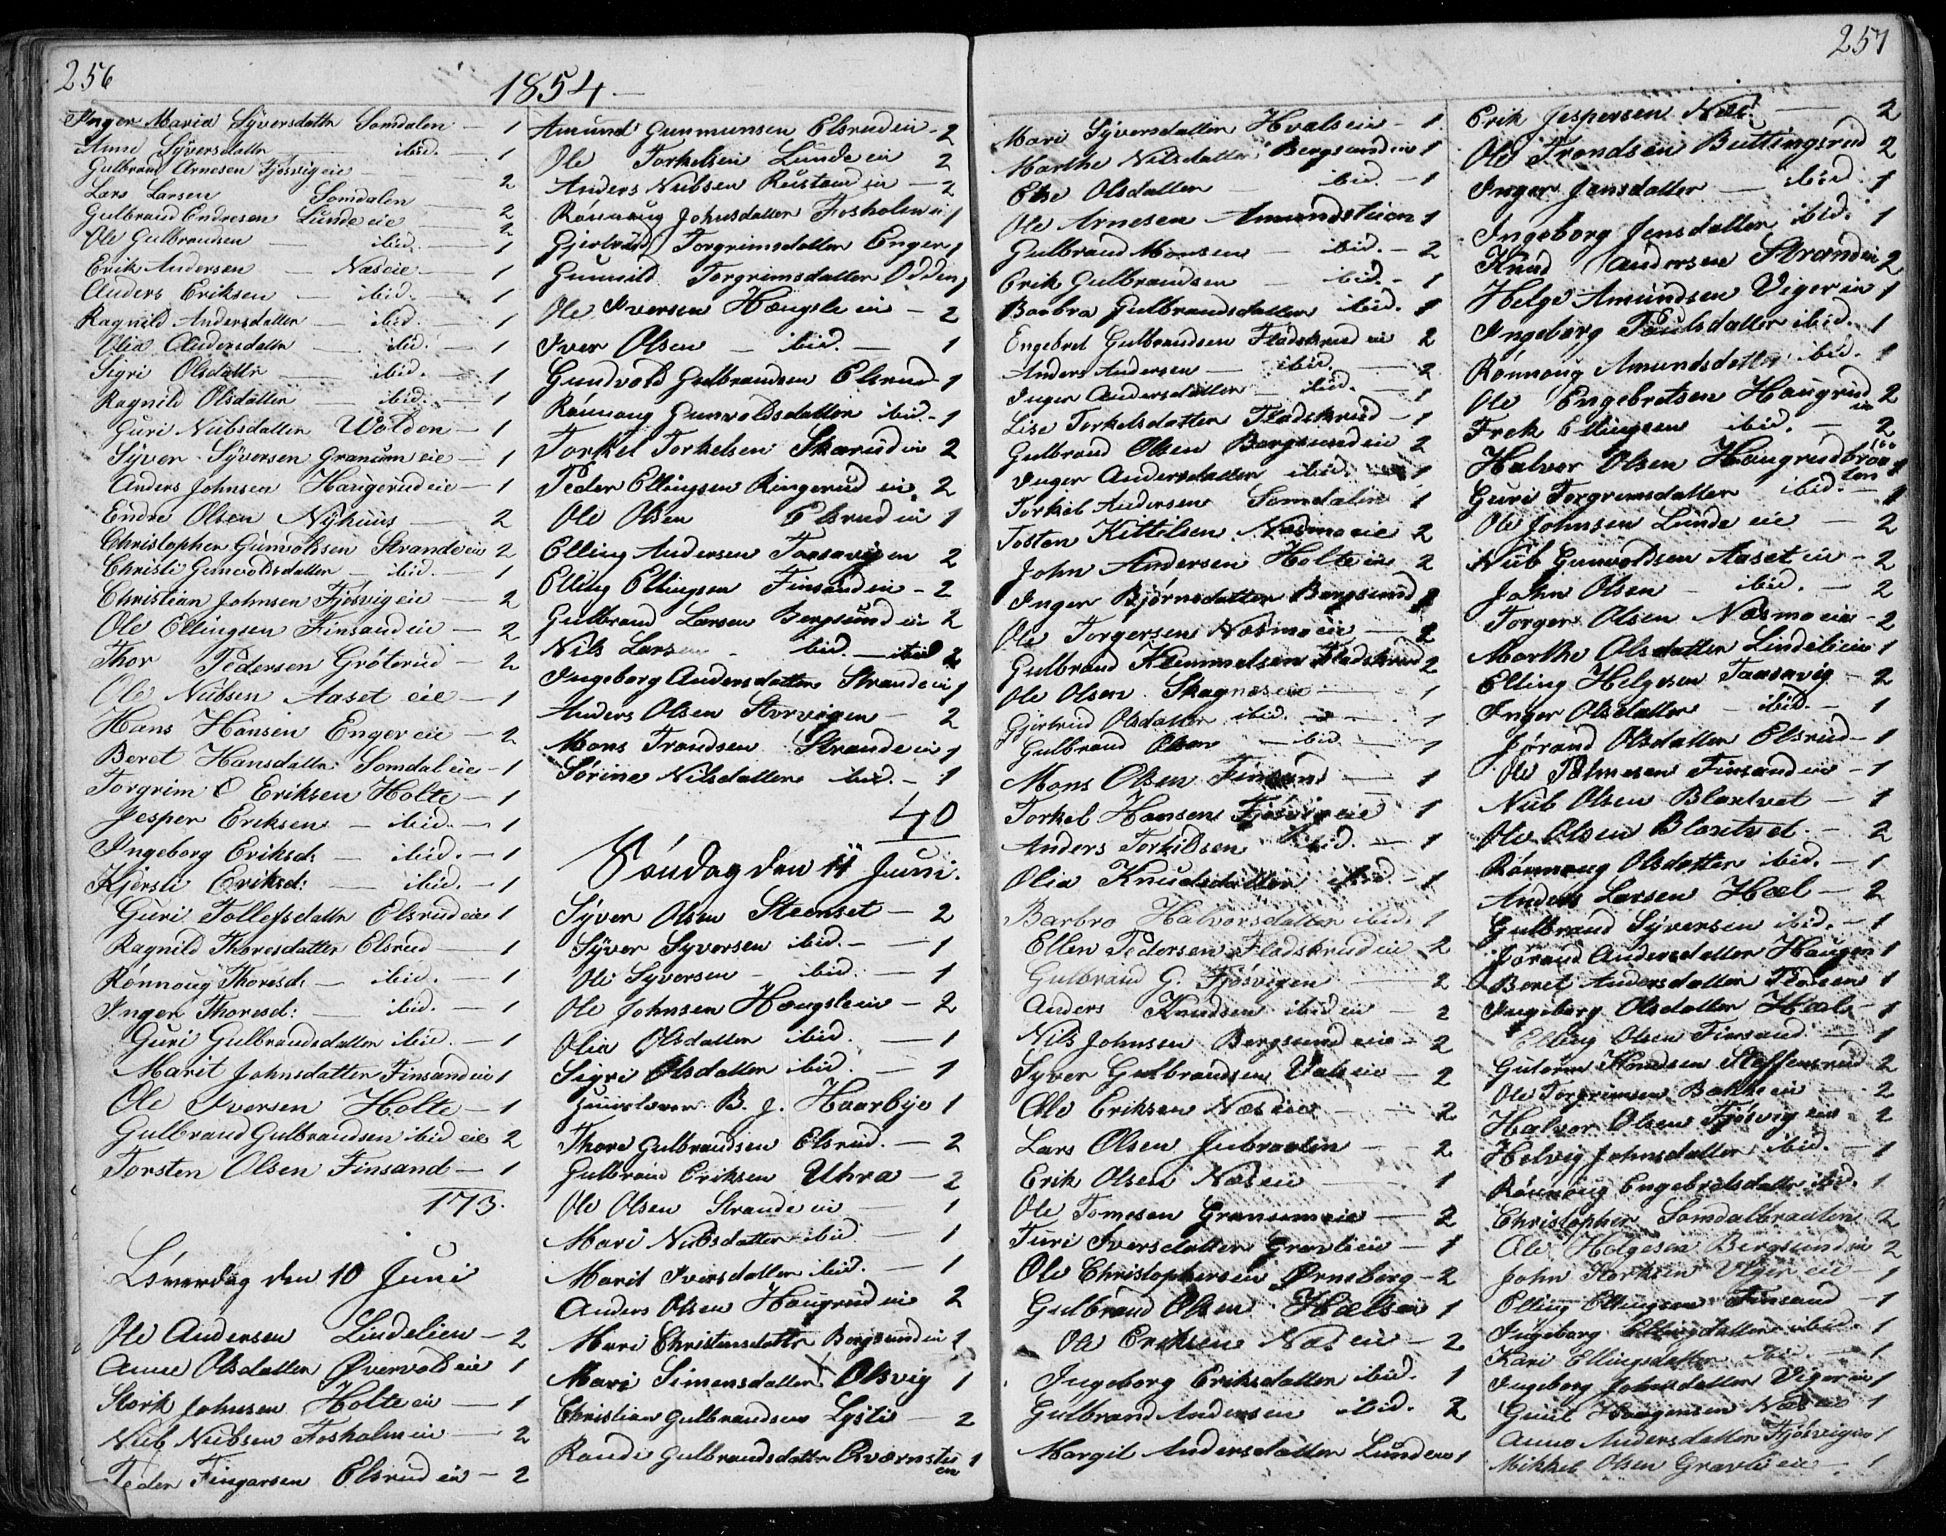 256
1854.
Inger Maria Syversdattr Somdalen — 1
Anne Syversdattr — ibid. — 1
Gulbrand Arnesen Fjøsvig eie — 2
Lars Larsen Somdalen — 2
Gulbrand Endresen Lunde eie 2
Ole Gulbrandsen — ibid. — 1
Erik Andersen — Næs eie — 1
Anders Eriksen — ibid. — 1
Ragnild Andersdatter — ibid. — 1
Olia Andersdattr — ibid. — 1
Sigri Olsdattr — ibid. — 1
Ragnild Olsdatter — ibid. — 1
Guri Nubsdatter Wolden — 1
Syver Syversen Granum eie — 1
Anders Johnsen Haugerud eie — 1
Endre Olsen Nyhuus — 2
Christopher Gunvoldsen Strande eie 2
Christi Gunvoldsdatter — ibid. 1
Christian Johnsen Fjøsvig eie — 2
Ole Ellingsen Finsand eie — 2
Thor Pedersen Grøterud — 2
Ole Nubsen Aaset eie — 1
Hans Hansen Enger eie — 2
Beret Hansdattr Somdal eie — 1
Torgrim O Eriksen Holte — 1
Jesper Eriksen — ibid. — 1
Ingeborg Eriksd: — ibid. — 1
Kjersti Eriksd: — ibid. — 1
Guri Tollefsdattr Elsrud eie 1
Ragnild Thoresdatter Elsrud — 1
Rønnoug Thoresd: — ibid. — 1
Inger Thoresd: — ibid. — 1
Guri Gulbrandsdatter ibid. — 1
Marit Johnsdatter Finsand eie 1
Ole Iversen Holte — 1
Gulbrand Gulbrandsen ibid eie 2
Torsten Olsen Finsand — 1
173.
Løverdag den 10 Juni
Ole Andersen Lindelien — 2
Anne Olsdatter Øvervold eie 1
Stork Johnsen Holte eie — 1
Nub Nubsen Fosholm eie — 2
Peder Fingarsen Elsrud eie — 2
Amund Gunmunsen Elsrud eie — 2
Ole Torkelsen Lunde eie 2
Anders Nubsen Rustand eie — 2
Rønnoug Johnsdatter Fosholm ei 1
Gjertrud Torgrimsdatter Enger 1
Gunnild Torgrimsdatter Odden 1
Ole Iversen Hængsle eie — 2
Iver Olsen — ibid. — 1
Gundvold Gulbrandsen Elsrud — 1
Rønnoug Gunvoldsdatter ibid — 1
Torkel Torkelsen Skarud eie 2
Peder Ellingsen Ringerud eie 2
Ole Olsen Elsrud eie 1
Elling Andersen Taasavigen 2
Elling Ellingsen Finsand eie — 2
Gulbrand Larsen Bergsund eie 2
Nils Larsen — ibid. — 2
Ingeborg Andersdatter Strande eie 1
Anders Olsen Storvigen — 2
Mons Trondsen Strande eie 1
Sørine Nilsdatter ibid. — 1
40
Søndag den 11 Juni.
Syver Olsen Steenset — 2
Syver Syversen ibid. — 1
Ole Syversen — ibid. — 1
Ole Johnsen Hængsle eie — 2
Olia Olsdatter ibid. — 1
Sigri Olsdatter ibid. — 1
B. J. Haarbye 1
Thore Gulbrandsen Elsrud. — 2
Gulbrand Eriksen Uhra — 2
Ole Olsen Strande eie — 1
Mari Nubsdatter ibid — 1
Marit Iversdatter ibid. — 1
Anders Olsen Haugrud eie 2
Mari Christensdattr Bergsund eie 1
Mari Simensdatter Olsvig 1
Christian Gulbrandsen Lystie 2
Randi Gulbrandsdatter Qværnstu eie 1
257
Mari Syversdatter Hvals eie — 1
Marthe Nilsdatter Bergsund eie 1
Else Olsdatter — ibid. — 1
Ole Arnesen Amundstuen 1
Gulbrand Monsen — ibid. — 2
Erik Gulbrandsen — ibid. — 1
Barbra Gulbrandsdatter ibid. 1
Engebret Gulbrandsen Fladskrud eie 2
Anders Andersen — ibid. — 2
Inger Andersdatter — ibid. — 1
Lise Torkelsdatter Fladskrud — 1
Gulbrand Olsen Bergsund eie 2
Inger Andersdatter ibid. 1
Torkel Andersen Somdalen 1
Tosten Kittelsen Næsmo eie 2
John Andersen Holte eie 2
Inger Bjørnsdatter Bergsund 2
Ole Torgersen Næsmo eie — 2
Gulbrand Klemmetsen Fladskrud 2
Ole Olsen Skagnæs eie — 1
Gjertrud Olsdatter ibid. — 1
Gulbrand Olsen — ibid. — 1
Mons Olsen Finsand — 1
Torkel Hansen Fjøsvig eie 1
Anders Torkildsen ibid. — 1
Olia Knudsdatter ibid. — 1
Barbro Halvorsdatter ibid. 1
Ellen Pedersen Fladskrud eie 2
Gulbrand G. Fjøsvigen — 2
Anders Knudsen ibid eie — 2
Nils Johnsen Bergsund eie — 2
Syver Gulbrandsen Vals eie — 2
Ole Eriksen Næs eie — 2
Lars Olsen Jubraaten — 2
Erik Olsen Næs eie — 1
Ole Tomesen Granum eie — 2
Turi Iversdatter Gravli eie — 1
Ole Christophersen Ørneberg — 2
Gulbrand Olsen Hæls eie 1
Ole Eriksen Næs eie — 2
Ingeborg Eriksdatter ibid. 1
Gulbrand Andersen ibid. 2
Margit Andersdatter Lunde eie 1
Erik Jespersen Næs — 2
Ole Trondsen Buttingsrud 2
Inger Jensdatter — ibid. 1
Ingeborg Jensdatter ibid. 1
Knud Andersen Strand eie 2
Helge Amundsen Viger eie 1
Ingeborg Paulsdatter ibid. 1
Rønnoug Amundsdatter ibid. 1
Ole Engebretsen Haugrud eie 2
Frek Ellingsen ibid. — 2
Halvor Olsen Haugrudbraaten 1
Guri Torgrimsdatter ibid. — 1
Ole Johnsen Lunde eie — 2
Nub Gunvoldsen Aaset eie — 2
John Olsen — ibid. — 2
Torger Olsen Næsmo eie — 2
Marthe Olsdatter Lindeli eie 1
Elling Helgesen Taasavig — 2
Inger Olsdatter — ibid. — 1
Jørand Olsdatter Elsrud — 1
Ole Tolmesen Finsand eie — 1
Nub Olsen Blaxtvet — 1
Ole Olsen Blaxtvet. — 2
Rønnoug Olsdatter ibid. — 1
Anders Larsen Hæl — 2
Gulbrand Syversen ibid. — 1
Jørand Andersdatter Haugen 1
Beret Andersdatter Fladeen 1
Ingeborg Olsdatter Hæl — 1
Elling Olsen Finsand — 1
Guttorm Knudsen Steffensrud 2
Ole Torgrimsen Bakke eie — 2
Halvor Olsen Fjøsvig eie — 2
Helvig Johnsdatter ibid. — 1
Rønnoug Engebretsdatter ibid. 1
Christopher Somdalbraaten 2
Ole Helgesen Bergsund eie 2
John Storksen Viger eie — 1
Elling Ellingsen Finsand — 1
Ingeborg Ellingsdatter ibid. 1
Kari Ellingsdatter ibid. — 1
Ingeborg Johnsdatter Viger eie 1
Haagensen Næs eie 1
Anne Andersdatter Fjøsvig eie 1
Mikkel Olsen Gravli eie — 1